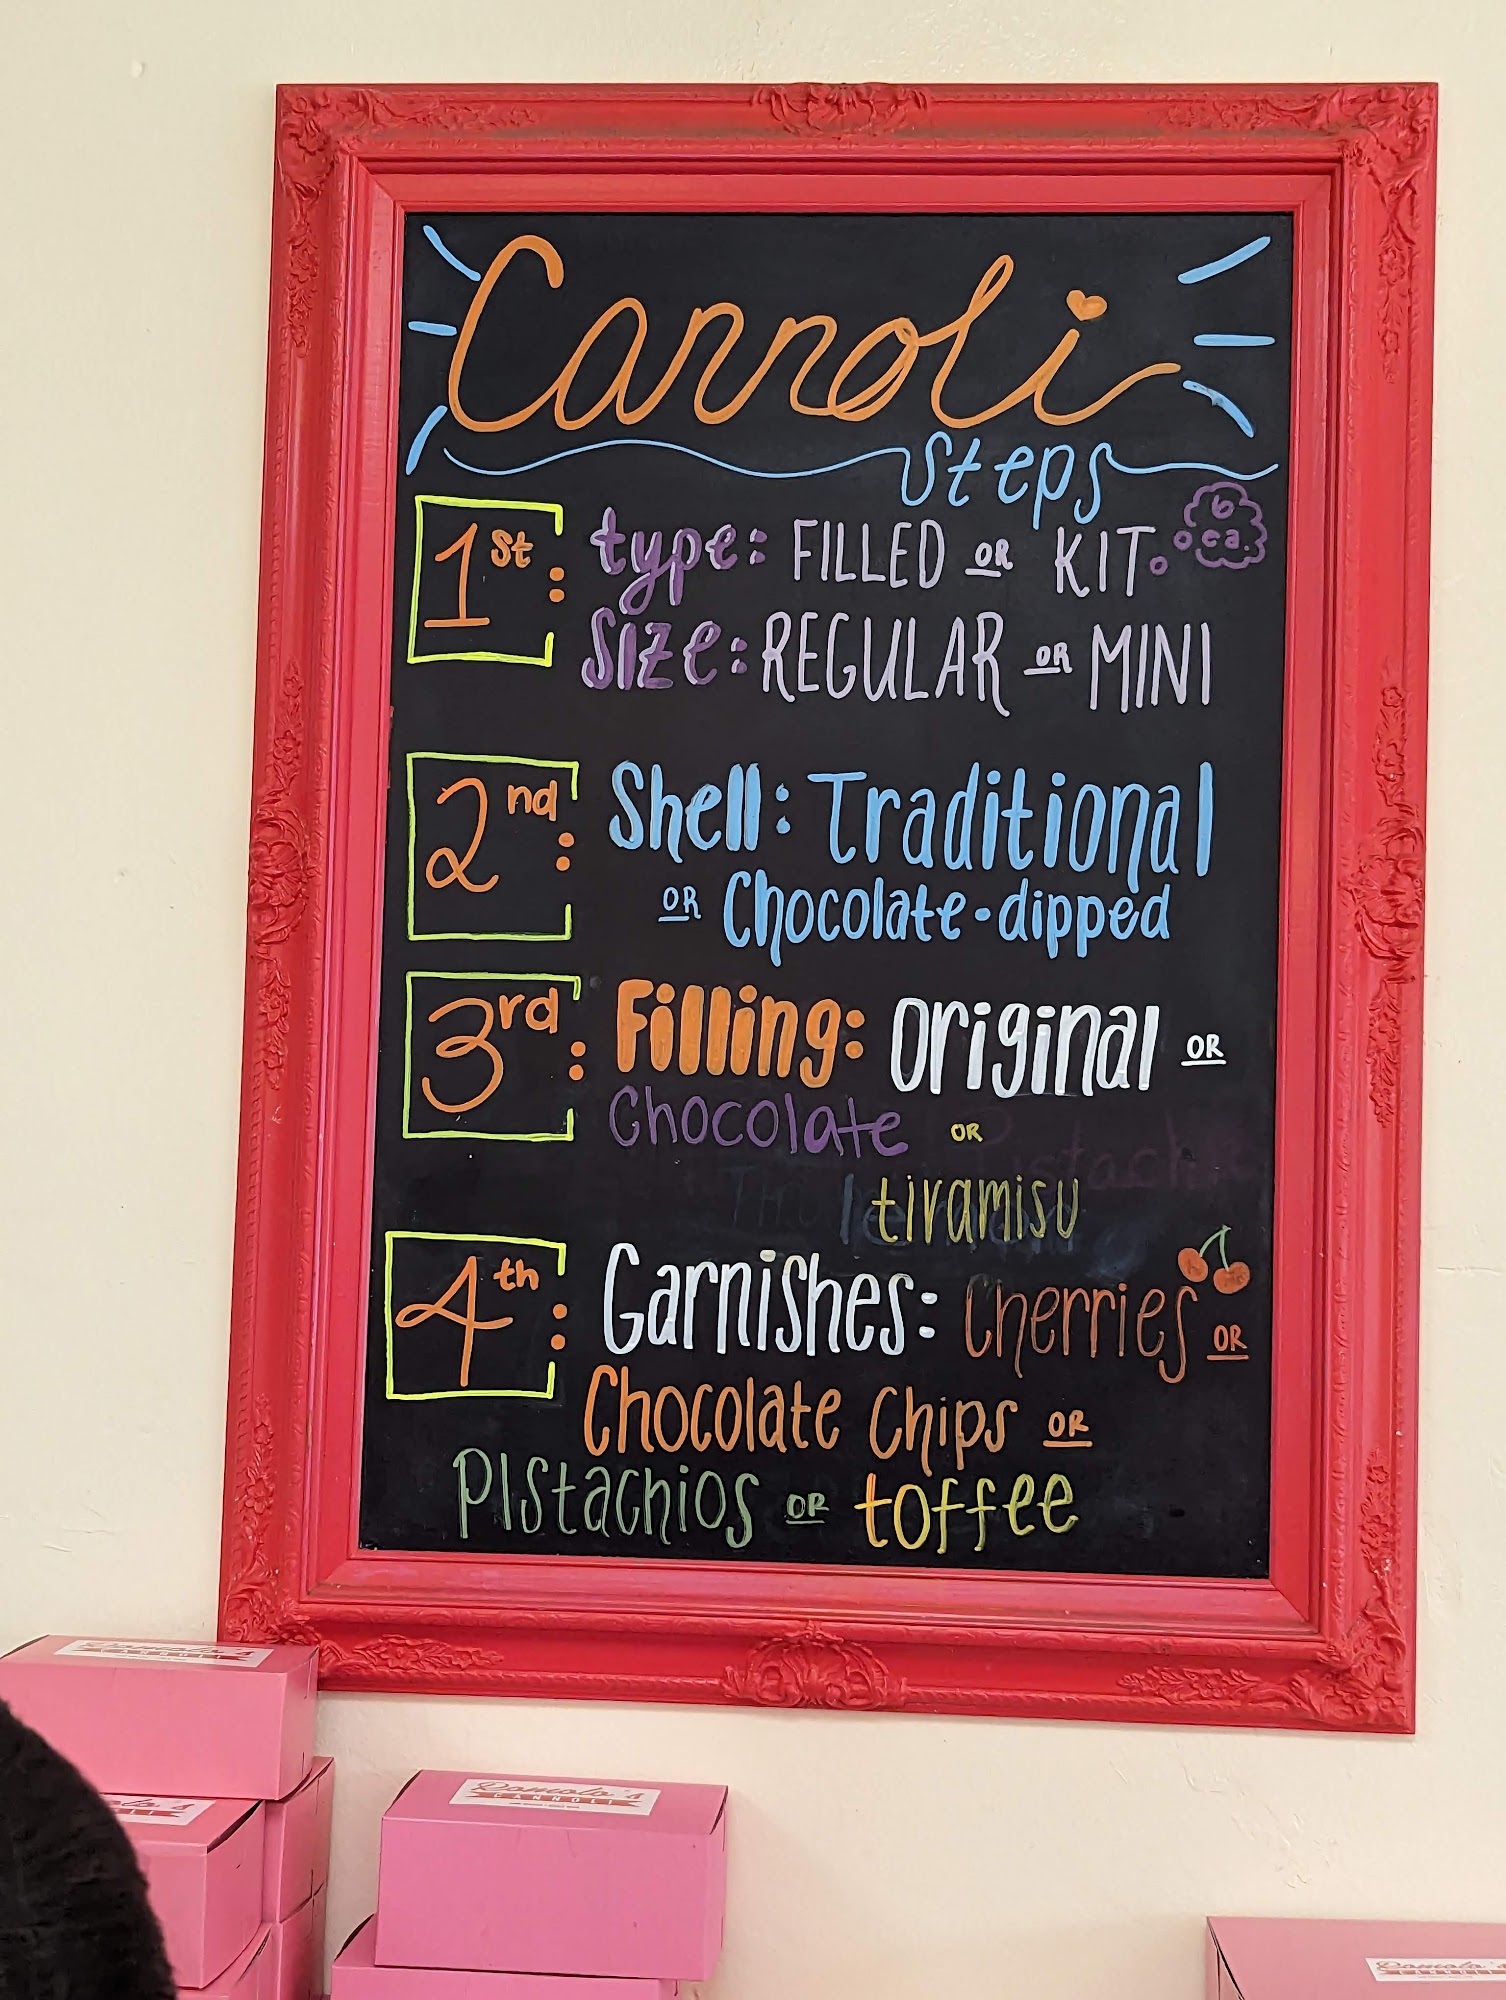 Cannoli
Steps
1st: type: FILLED OR KIT 6 ea.
Size: REGULAR OR MINI
2nd: Shell: Traditional
OR Chocolate-dipped
3rd: Filling: Original OR
Chocolate OR
tiramisu
4th: Garnishes: Cherries OR
Chocolate Chips OR
Pistachios OR toffee
Romolo's
Romolo's
CANNOLI
Romolo's
CANNOLI